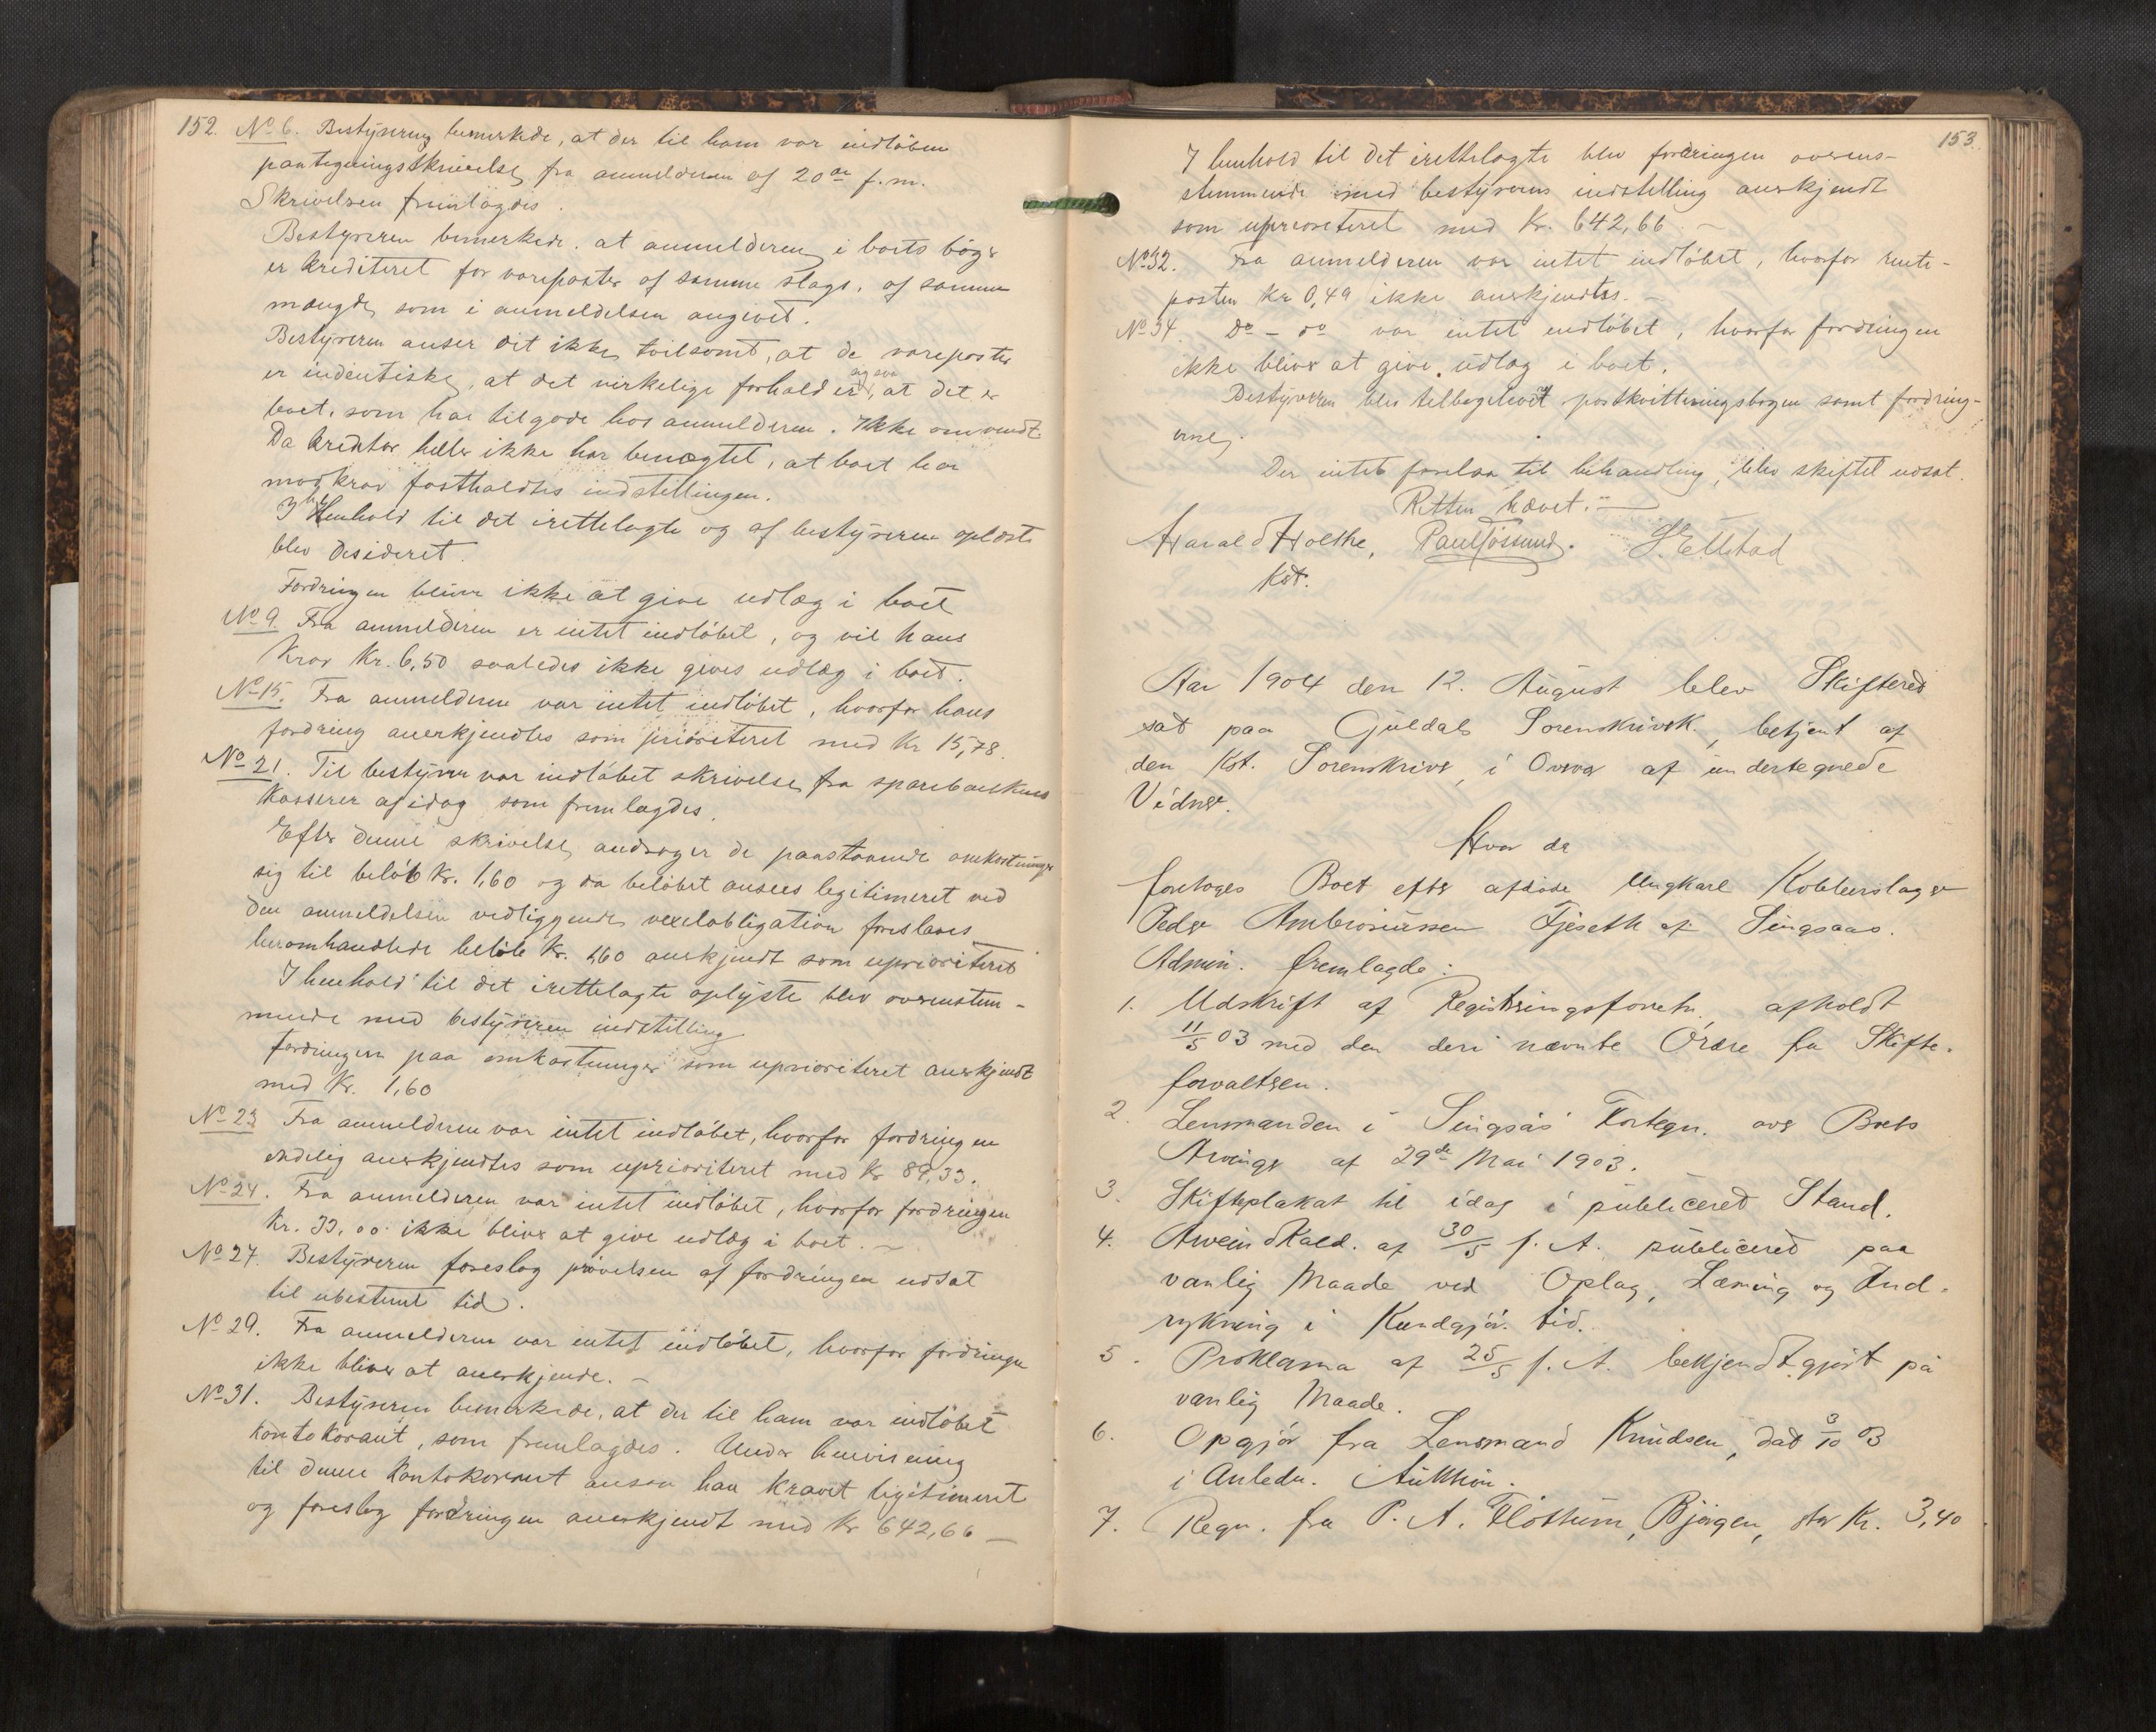 152.
No 6. Bestyreren bemerkede, at der til ham var indløben
paategningsskrivelse fra anmelderen af 20de f. m.
Skrivelsen fremlagdes.
Bestyreren bemerkede, at anmelderen i boets bøger
er krediteret for vareposter af samme slags, af samme
mængde, som i anmeldelsen angivet.
Bestyreren anser det ikke tvilsomt, at de vareposter
er indentiske, at det virkelige forhold er sig saa, at det er
boet, som har tilgode hos anmelderen. Ikke omvendt.
Da kreditor heller ikke har benægtet, at boet har
modkrav fastholdtes indstillingen.
I Henhold til det irettelagte og af bestyreren oplæste
blev desideret.
Fordringen bliver ikke at give udlæg i boet
No 9. Fra anmelderen er intet indløbet, og vil hans
krav Kr. 6,50 saaledes ikke gives udlæg i boet.
No 15. Fra anmelderen var intet indløbet, hvorfor hans
fordring anerkjendtes som prioriteret med Kr 15,78.
No 21. Til bestyrer var indløbet skrivelse fra sparebankens
Kasserer af idag som fremlagdes.
Efter denne skrivelse, andrager de paastaaende omkostninger
sig til beløb Kr. 1,60 og da beløbet ansees legitimeret ved
den anmeldelsen vedliggende vexelobligation foreslaaes
heromhandlede beløb Kr. 1,60 anerkjendt som uprioriteret
I henhold til det irettelagte oplyste blev overenstem-
mende med bestyreren indstilling
fordringen paa omkostninger som uprioriteret anerkjendt
med Kr. 1,60
No 23 Fra anmelderen var intet indløbet, hvorfor fordringen
endelig anerkjendtes som uprioriteret med Kr 89,33.
No 24. Fra anmelderen var intet indløbet, hvorfor fordringen
Kr. 33,00 ikke bliver at give udlæg i boet.
No 27. Bestyreren foreslog prøvelsen af fordringen udsat
til ubestemt tid.
No 29. Fra anmelderen var intet indløbet, hvorfor fordringen
ikke bliver at anerkjende.
No 31. Bestyreren bemerkede, at der til ham var indløbet
kontokorant, som fremlagdes. Under henvisning
til denne kontokorant ansaa han kravet legitimeret
og foreslog fordringen anerkjendt med Kr 642,66
153.
I henhold til det irettelagte blev fordringen overens-
stemmende med bestyrerens indstilling anerkjendt
som uprioriteret med Kr. 642,66.
No 32. Fra anmelderen var intet indløbet, hvorfor rente-
posten Kr 0,49 ikke anerkjendtes.
No 34. Do - do var intet indløbet, hvorfor fordringen
ikke bliver at give udlæg i boet.
Bestyreren blev tilbageleveret postkvitteringsbogen samt fordring-
erne.
Der intet forelaa til behandling, blev skiftet udsat.
Retten hævet.
Harald Holthe, Paul Fossund. S. Ellstad
Kst.
Aar 1904 den 12. August blev Skifteret
sat paa Guldals Sorenskrivsk., betjent af
den Kst. Sorenskriver, i Overvær af undertegnede
Vidner.
Hvor da
foretoges Boet efter afdøde Ungkarl Kobberslager
Peder Ambrosiussen Fjeseth af Singsaas.
Admin. fremlagde:
1. Udskrift af Registreringsforretn. afholdt
11/5 03 med den deri nævnte Ordre fra Skifte-
forvalteren.
2. Lensmanden i Singsås Fortegn. over Boets
Arvinger af 29de Mai 1903.
3. Skifteplakat til idag i publiceret Stand.
4. Arveindkald. af 30/5 f. A. publiceret paa
vanlig Maade ved Oplag, Læsning og Ind-
rykning i Kundgjør. tid.
5. Proklama af 25/5 f. A. bekjendtgjort på
vanlig Maade.
6. Opgjør fra Lensmand Knudsen, dat 3/10 03
i Anledn. Auktion.
7. Regn. fra P. A. Fløttum, Bjørgen, stor Kr. 3,40